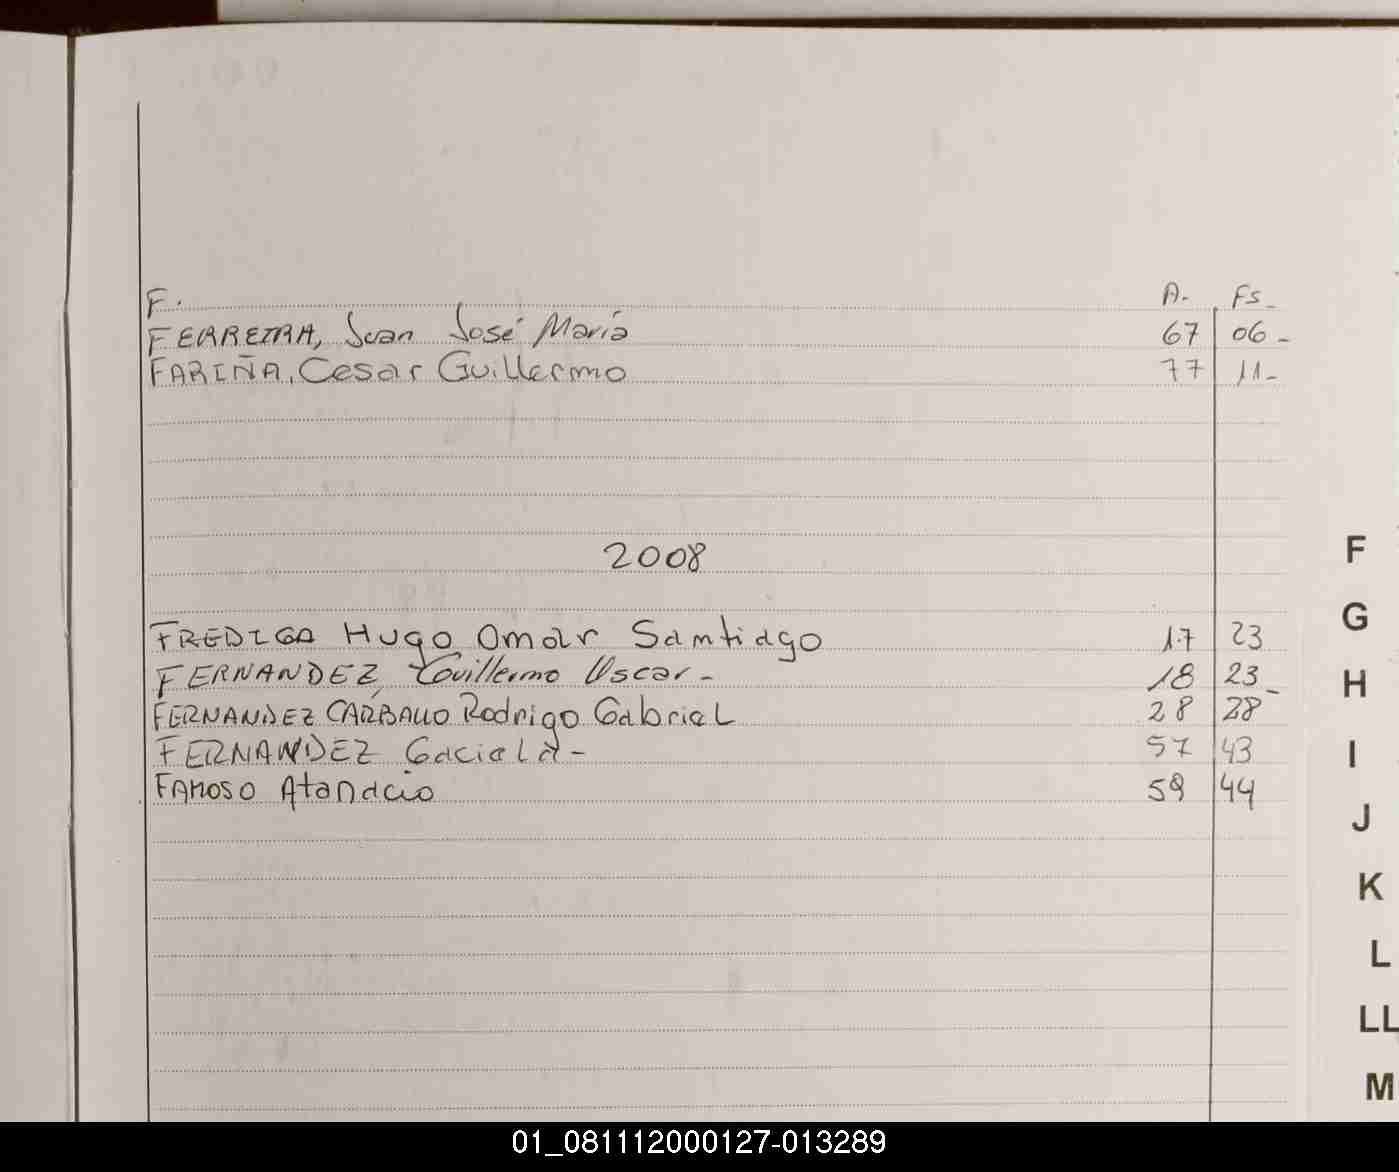 F. A. Fs-
FERREIRA, Juan José María 67 06-
FARIÑA, Cesar Guillermo 77 11-
2008
FREDIGO Hugo Omar Santiago 17 23
FERNANDEZ, Guillermo Oscar- 18 23-
FERNANDEZ CARBALLO Rodrigo Gabriel 28 28
FERNANDEZ Gaciela- 57 43
FAMOSO Atanacio 59 44
F
G
H
I
J
K
L
LL
M
01_081112000127-013289